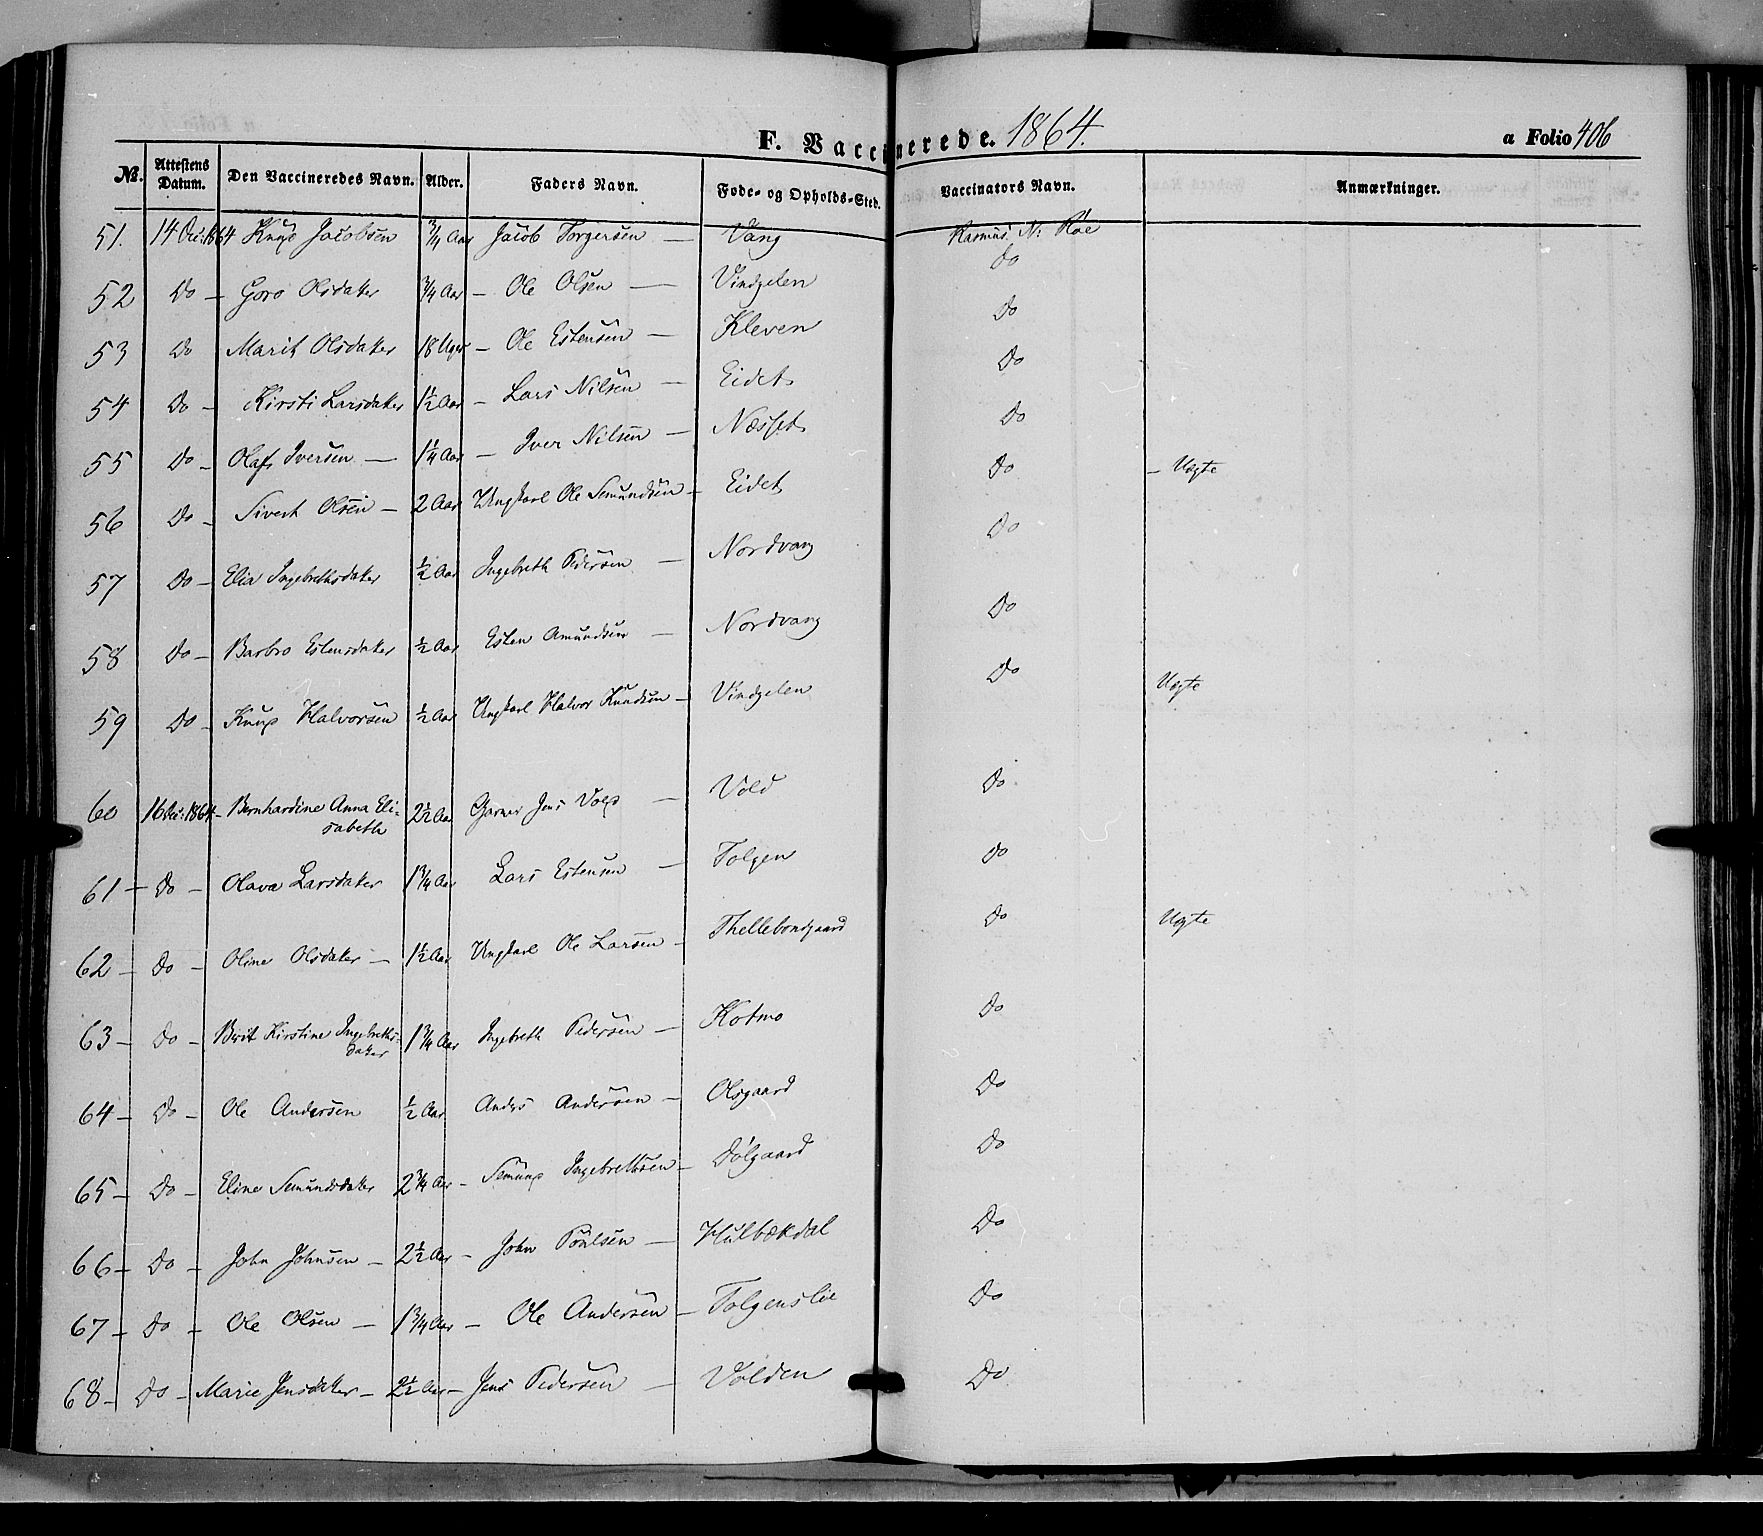 F. Vaccinerede. 1864.
a Folio 406
No. Attestens Datum. Den Vaccineredes Navn. Alder. Faders Navn. Føde- og Opholds-Sted. Vaccinators Navn. Anmærkninger.
51. 14 Oct: 1864 Knud Jacobsen 3/4 Aar Jacob Torgersen — Vang Rasmus N: Røe
52 Do — Goro Olsdater 3/4 Aar — Ole Olsen — Vindgelen Do
53 Do Marit Olsdater 18 Uger — Ole Estensen — Kleven Do
54 Do — Kirsti Larsdater 1½ Aar — Lars Nilsen — Eidet Do
55 Do — Olaf Iversen — 1¼ Aar — Iver Nilsen — Næsset Do
56 Do — Sivert Olsen — 2 Aar Ungkarl Ole Semundsen — Eidet Do — Uægte
57 Do — Elia Ingebrethsdater ½ Aar Ingebreth Pedersen — Nordvang Do
58 Do — Barbro Estensdater ½ Aar Esten Amundsen — Nordvang Do
59 Do — Knud Halvorsen ½ Aar Ungkarl Halvor Knudsen — Vindgelen Do Uægte
60 1864 — Bernhardine Anna Eli-
sabeth 2½ Aar Garver Jens Vold — Vold Do
61 — Do — Olava Larsdater 1¾ Aar Lars Estensen — Tolgen Do
62 — Do — Oline Olsdater — 1½ Aar Ungkarl Ole Larsen — Thellebondgaard Do Uægte
63 — Do — Berit Kirstine Ingebreths-
dater 1¾ Aar Ingebreth Pedersen — Kotmo Do
64 — Do — Ole Andersen ½ Aar Anders Andersen — Olsgaard Do
65 — Do — Eline Semundsdater 2¾ Aar — Semund Ingebrethsen — Dølgaard Do
66 — Do — John Johnsen — 2½ Aar — John Poulsen — Hulbækdal Do
67 — Do — Ole Olsen — 1¾ Aar — Ole Andersen — Tolgenslie Do
68 — Do — Marie Jensdater — 2½ Aar — Jens Pedersen — Volden Do